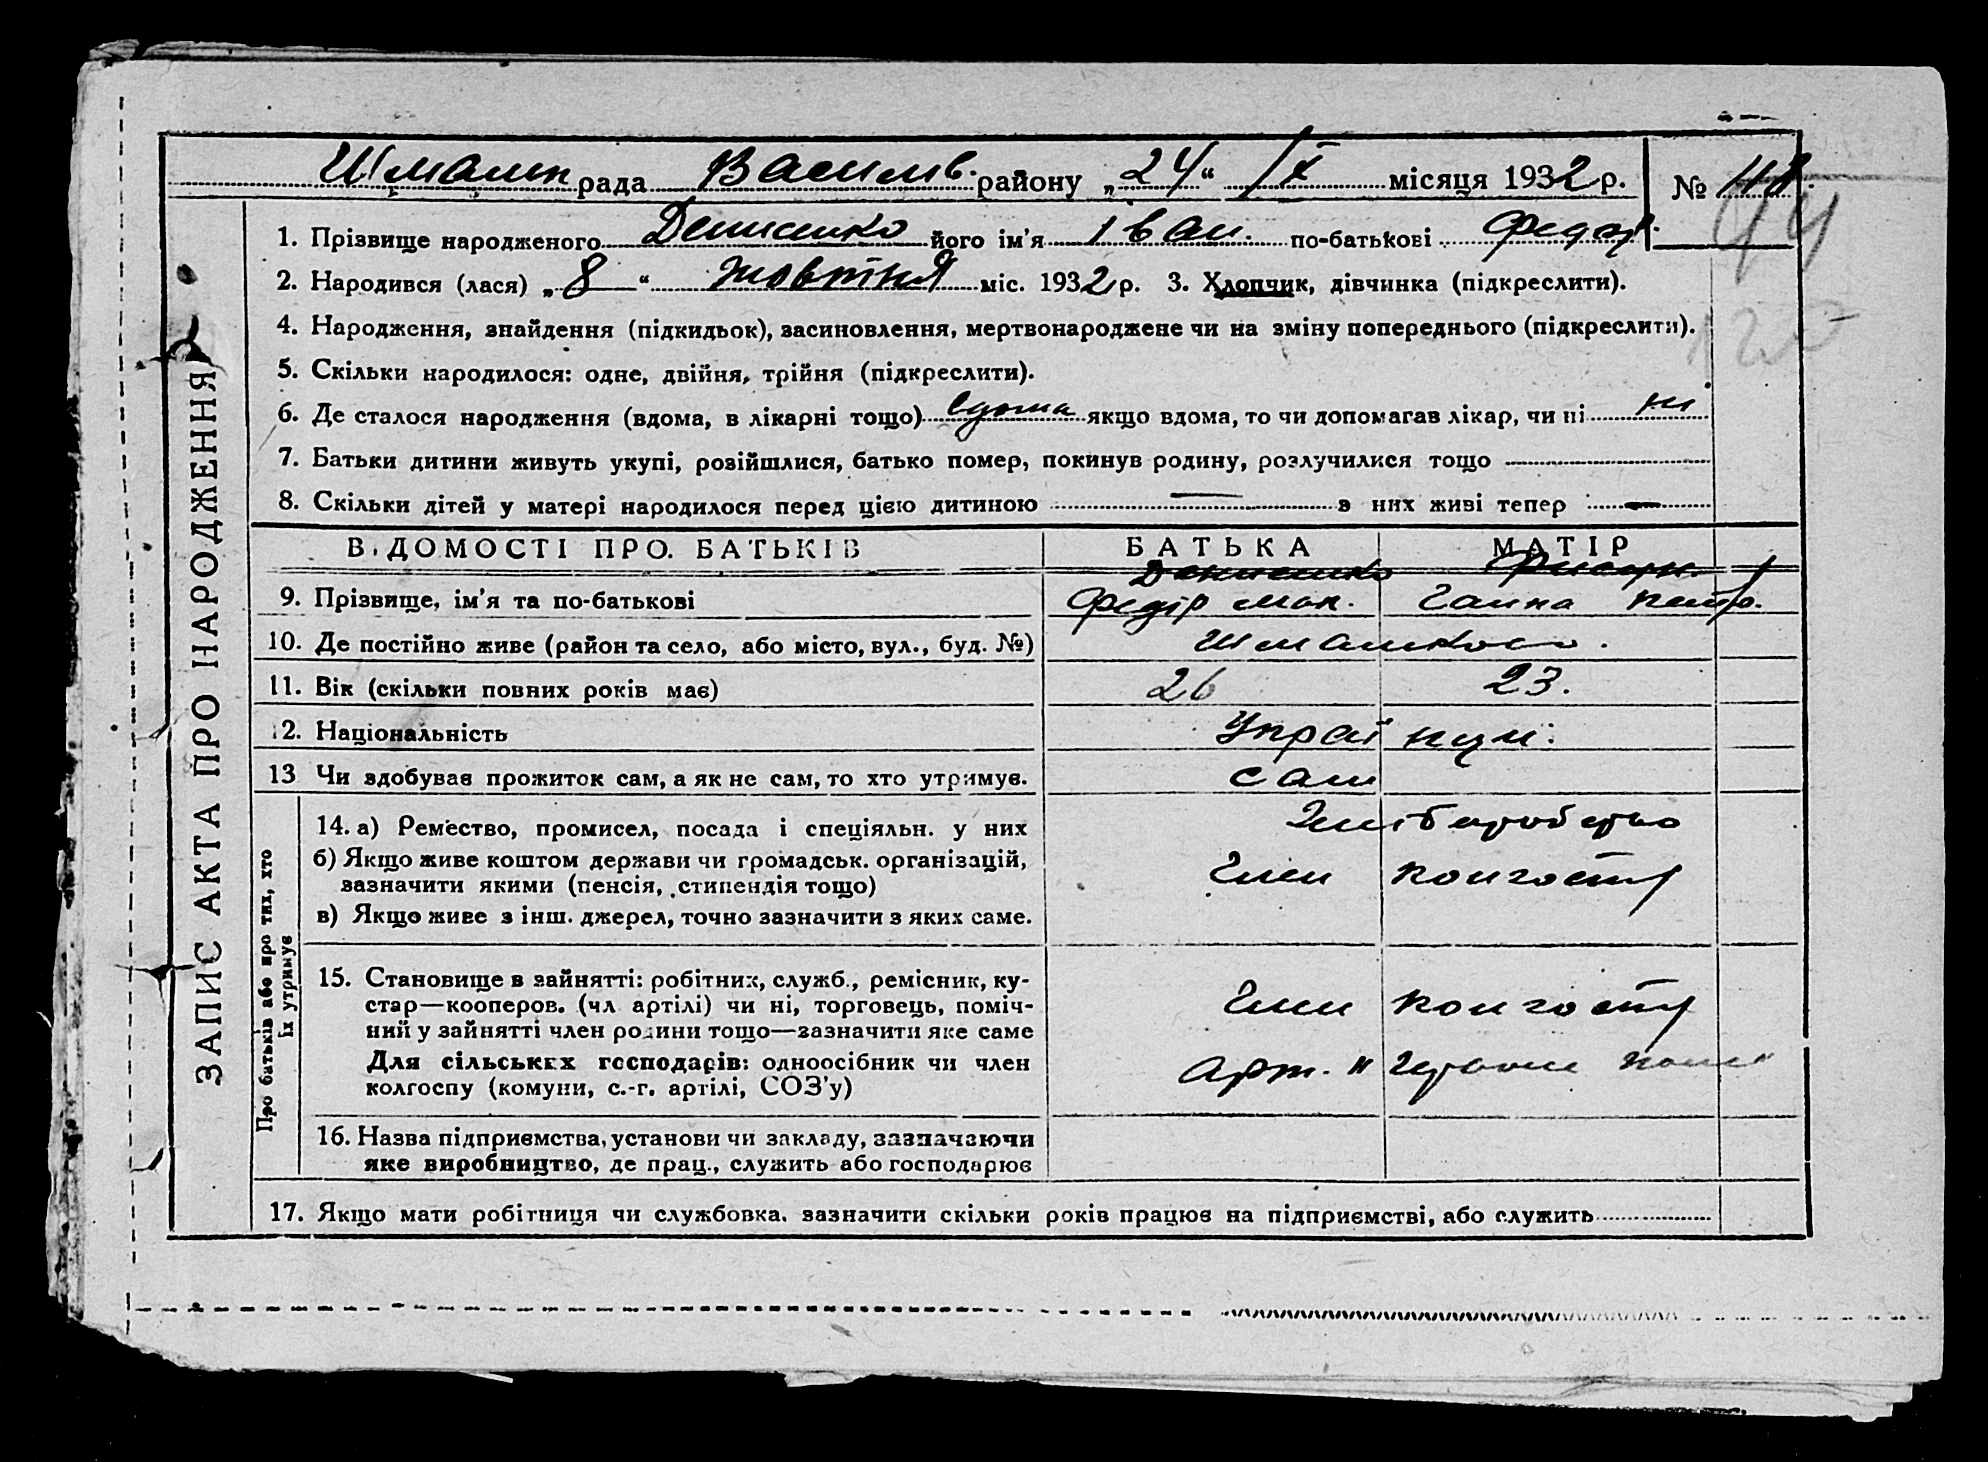 рада Василів. району „24“ IX місяця 1932 р. №
44
1. Прізвище народженого Денисенко його ім'я Іван. по-батькові Федор.
2. Народився (лася) „8“ жовтня міс. 1932 р. 3. Хлопчик, дівчинка (підкреслити).
4. Народження, знайдення (підкидьок), засиновлення, мертвонароджене чи на зміну попереднього (підкреслити).
5. Скільки народилося: одне, двійня, трійня (підкреслити).
6. Де сталося народження (вдома, в лікарні тощо) вдома якщо вдома, то чи допомагав лікар, чи ні ні
7. Батьки дитини живуть укупі, розійшлися, батько помер, покинув родину, розлучилися тощо
8. Скільки дітей у матері народилося перед цією дитиною — з них живі тепер —
ВІДОМОСТІ ПРО БАТЬКІВ БАТЬКА МАТІР
Денисенко
9. Прізвище, ім'я та по-батькові Федір Ганна
10. Де постійно живе (район та село, або місто, вул., буд. №)
11. Вік (скільки повних років має) 26 23.
12. Національність Українци
13 Чи здобував прожиток сам, а як не сам, то хто утримує. сам
14. а) Рем'ество, промисел, посада і спеціяльн. у них
б) Якщо живе коштом держави чи громадськ. організацій, член колгоспу
зазначити якими (пенсія, стипендія тощо)
в) Якщо живе з інш. джерел, точно зазначити з яких саме.
15. Становище в зайнятті: робітник, служб., ремісник, ку-
стар—кооперов. (чл артілі) чи ні, торговець, поміч- член колгоспу
ний у зайнятті член родини тощо—зазначити яке саме
Для сільських господарів: одноосібник чи член арт.
колгоспу (комуни, с.-г. артілі, СОЗ'у)
16. Назва підприємства, установи чи закладу, зазначаючи
яке виробництво, де прац., служить або господарює
17. Якщо мати робітниця чи службовка, зазначити скільки років працює на підприємстві, або служить
ЗАПИС АКТА ПРО НАРОДЖЕННЯ
Про батьків або про тих, хто
їх утримує